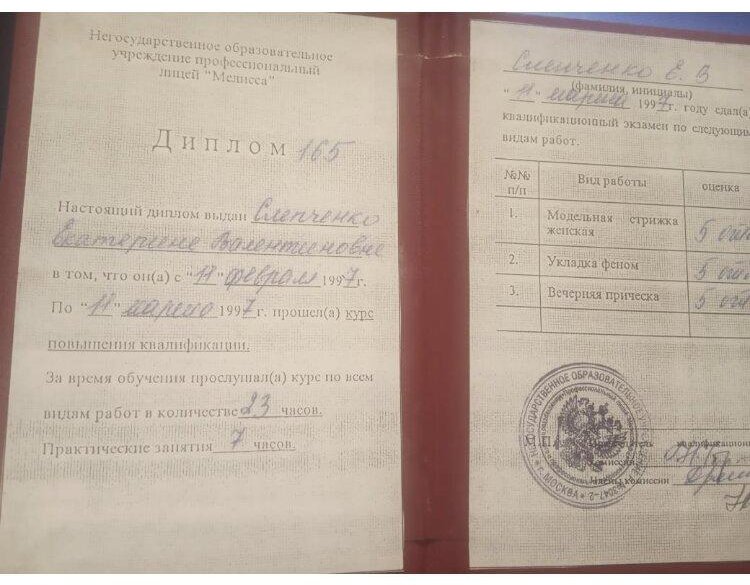 Негосударственное образовательное
учреждение профессиональный
лицей "Мелисса"
ДИПЛОМ 165
Настоящий диплом выдан Слепченко
Екатерине Валентиновне
в том, что он(а) с "11" февраля 1997г.
По "11" марта 1997г. прошел(а) курс
повышения квалификации.
За время обучения прослушал(а) курс по всем
видам работ в количестве 23 часов.
Практические занятия 7 часов.
Слепченко Е. В
(фамилия, инициалы)
"11" марта 1997г. году сдал(а)
квалификационный экзамен по следующим
видам работ.
№№ п/п Вид работы оценка
1. Модельная стрижка женская 5
2. Укладка феном 5
3. Вечерняя прическа 5
комиссии
Члены комиссии
МОСКВА